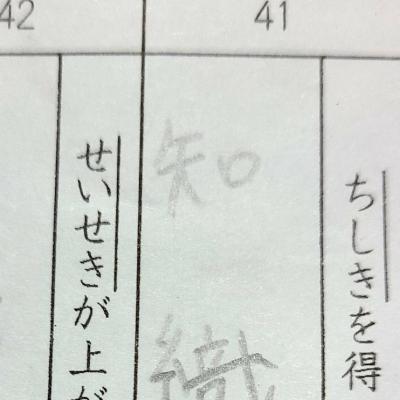 41
ちしきを得
知織
42
せいせきが上が